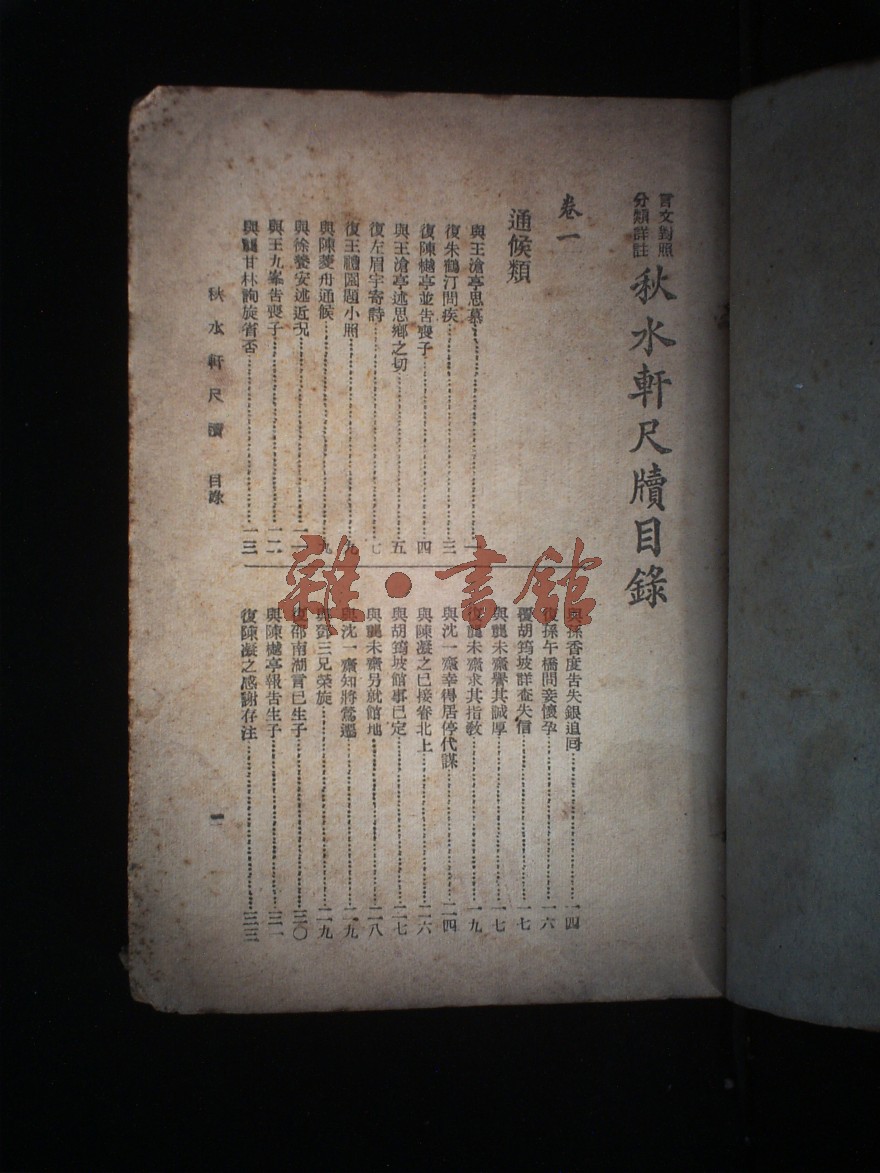 言文對照
分類詳註
秋水軒尺牘目錄
卷一
通候類
與王滄亭思慕……一
復朱鶴汀問疾……三
復陳樾亭並告喪子……四
與王滄亭述思鄉之切……五
復左眉宇寄詩……七
復王禮圃題小照……九
與陳菱舟通候……九
與徐爕安述近况……一一
與王九峯告喪子……一二
與龔甘林詢旋省否……一三
與孫香度告失銀追回……一四
復孫午橋問妾懷孕……一六
覆胡筠坡詳查失信……一七
與龔未齋譽其誠厚……一七
復龔未齋求其指敎……一九
與沈一齋幸得居停代謀……二四
與陳凝之已接眷北上……二六
與胡筠坡館事已定……二七
與龔未齋另就館地……二八
與沈一齋知將鶯遷……二九
與鄧三兄榮旋……二九
復邵南湖言已生子……三〇
與陳樾亭報告生子……三一
復陳凝之感謝存注……三三
秋水軒尺牘 目錄
一
雜·書館